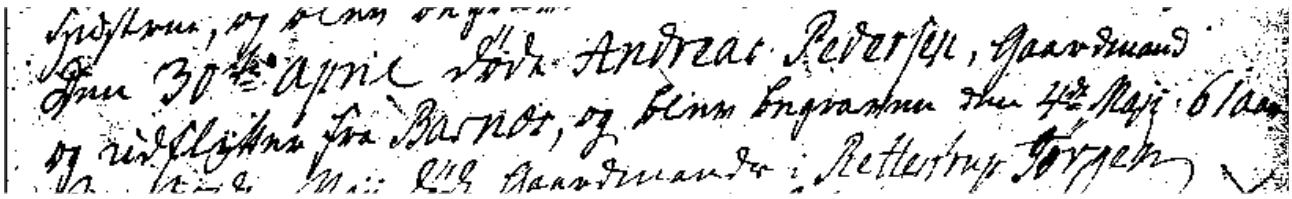 Hustrue, og blev begra
Den 30te April døde Andreas Pedersen, Gaardmand
og udflytter fra Barnæs, og blev begraven den 4de Maji 61 aar
Maji døde Gaardmande i Rettestrup Jørgen